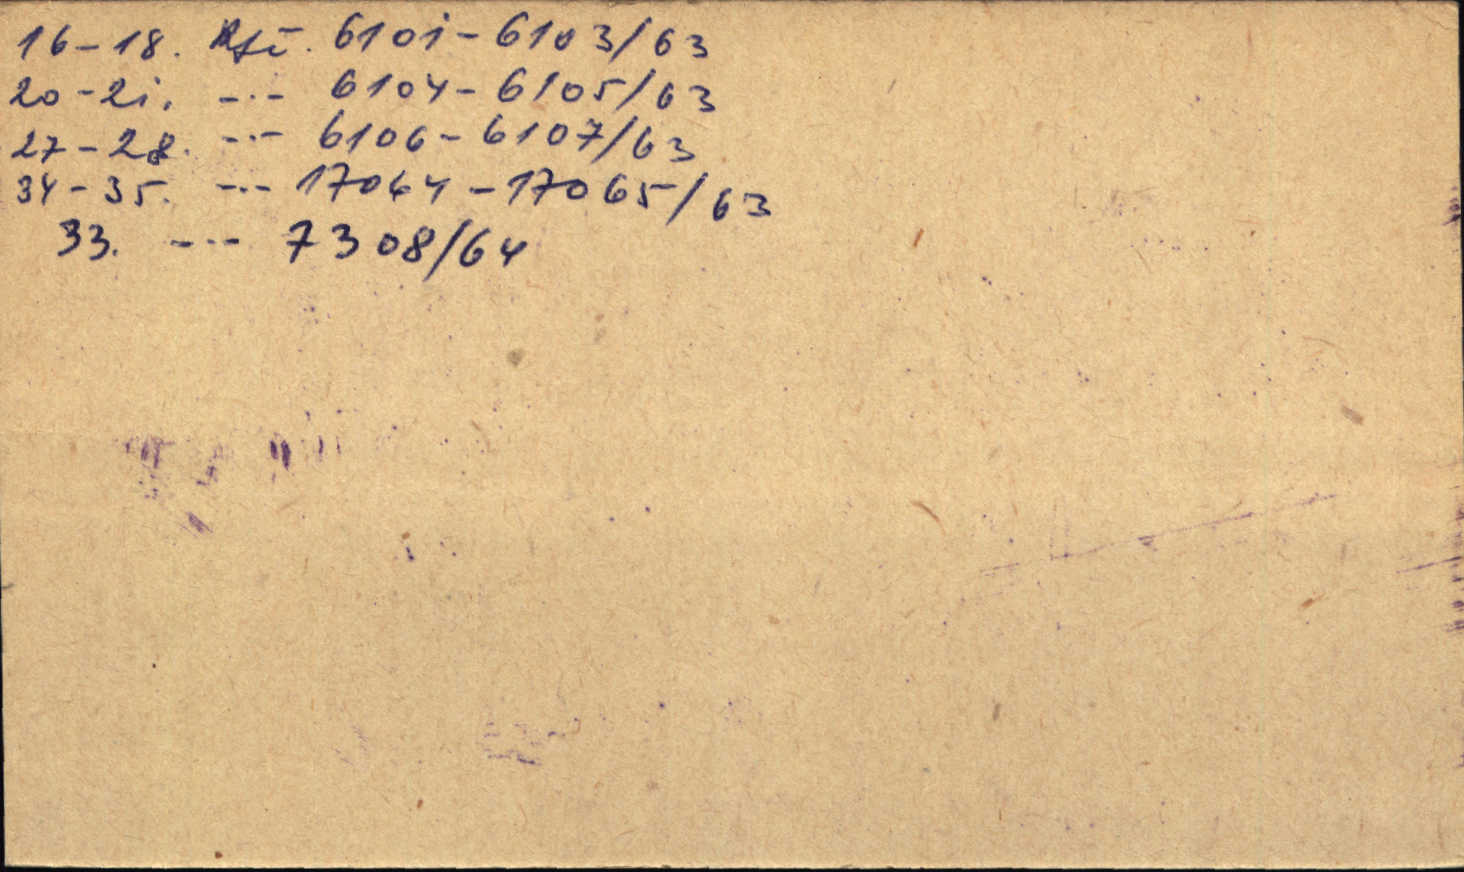 16-18. Rfü. 6101-6103/63
20-21. -·- 6104-6105/63
27-28. -·- 6106-6107/63
34-35. -·- 17064-17065/63
33. -·- 7308/64